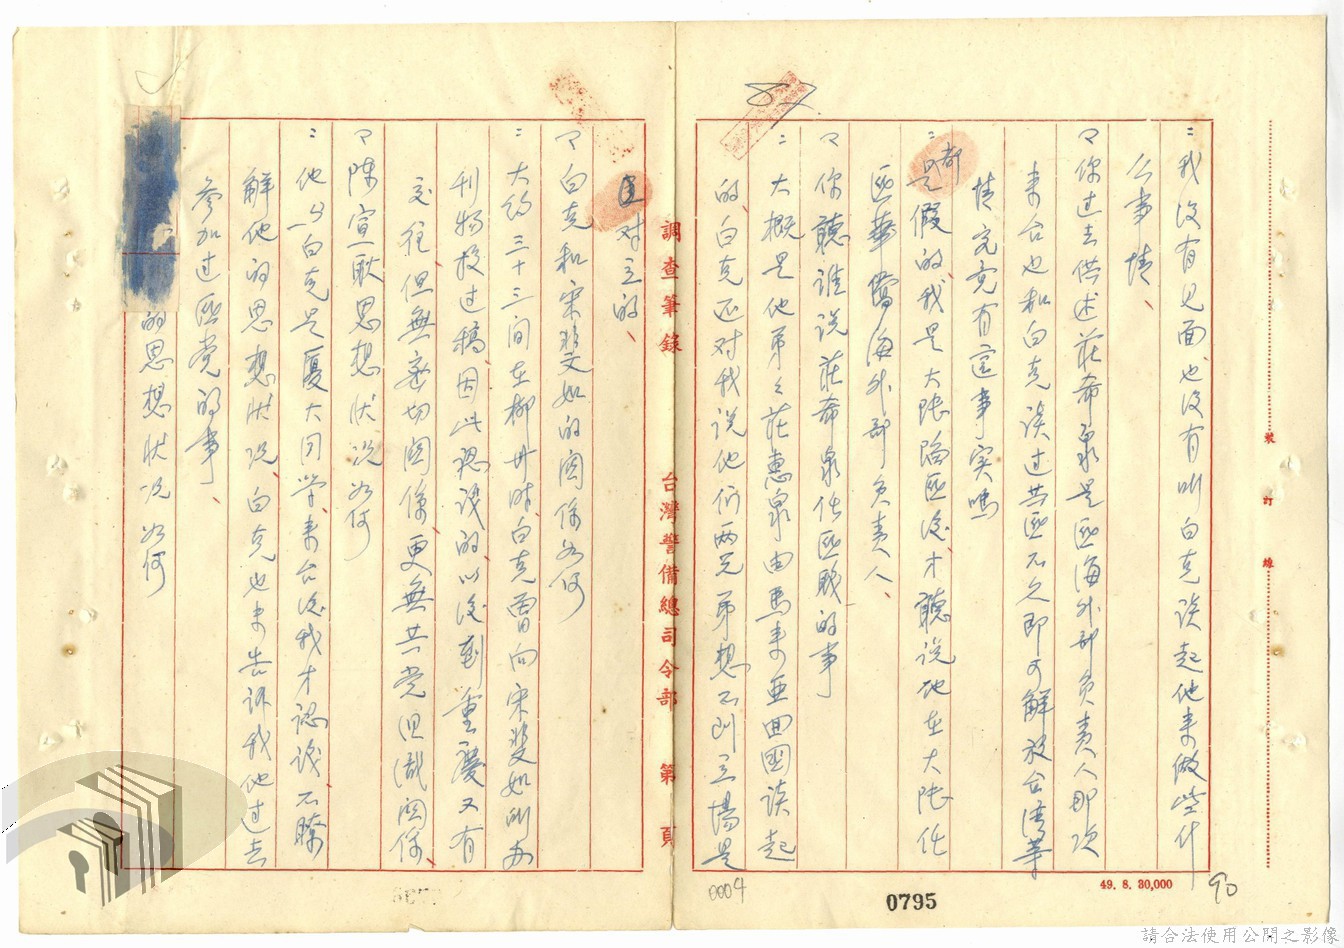 ：我沒有見面、也沒有叫白克談起他來做些什
么事情、
？你过去供述莊希泉是匪海外部负责人那次
来台也和白克談过共匪不久即可解放台湾等
情究竟有這事实嗎
：都是假的我是大陸陷匪後才聽说他在大陸任
匪華僑海外部负责人、
？你聽谁说莊希泉任匪職的事
：大概是他弟弟莊惠泉由馬来亜回國談起
的、白克还对我说他们两兄弟想不到立場是
对立的、
？白克和宋斐如的関係如何
：大約三十三间在柳州時、白克曾向宋斐如所办
刊物投过稿、因此認識的、以後到重慶又有
交往、但無密切関係、更無共党组織関係、
？陳宣耿思想状况如何
：他与白克是厦大同学、来台後我才認識、不瞭
解他的思想状况、白克也未告訴我他过去
参加过匪党的事、
的思想状况如何
調查筆錄
台灣警備總司令部
第 頁
裝 訂 線
49. 8. 30,000
90
0795
0004
請合法使用公開之影像